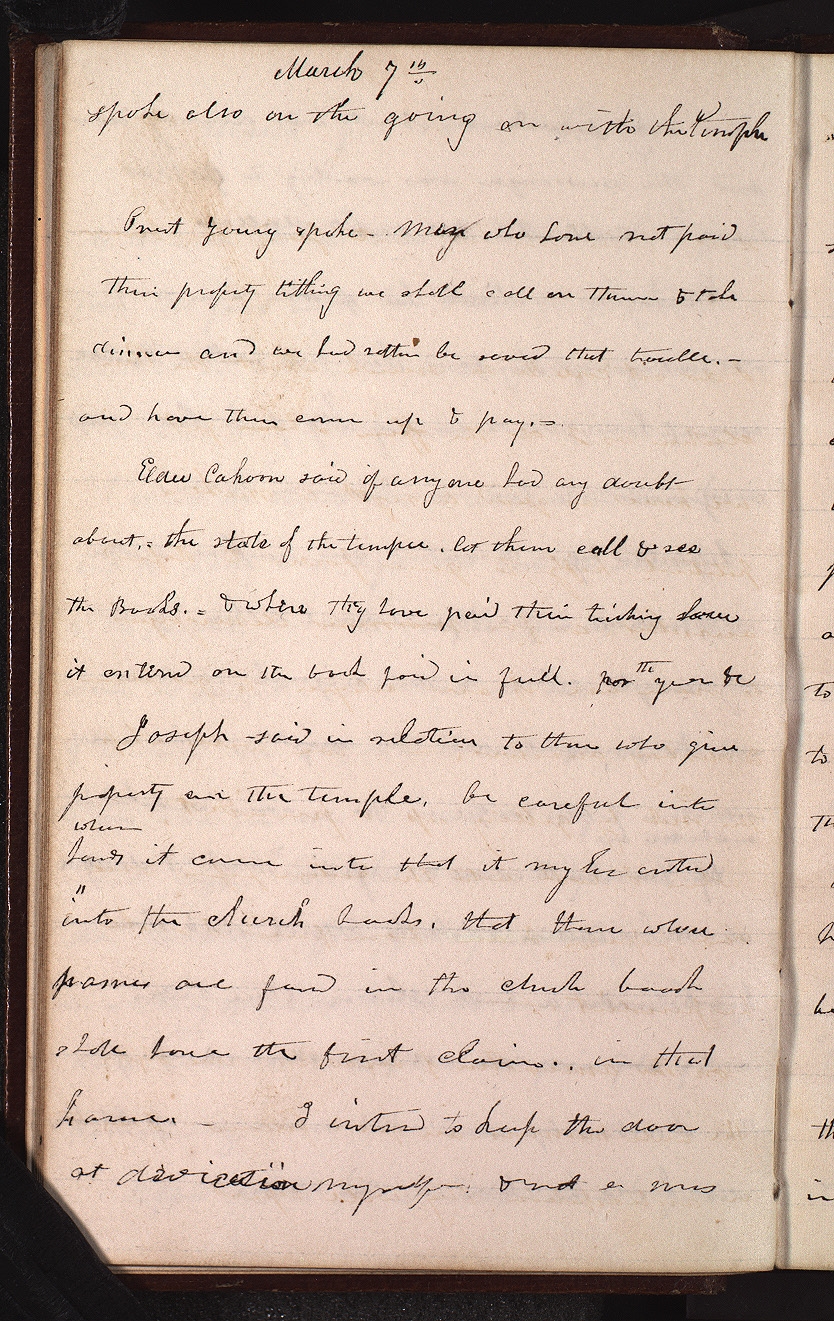 March 7th
spoke also on the going on with the Temple
Prest Young spoke - Men who have not paid
their property tithing we shall call on them & take
dinner and we had rather be saved that trouble. -
and have them come up & pay. =
Elder Cahoon said if any one had any doubt
about, = the state of the temple. let them call & see
the Books. = & where they have paid their tithing have
it entered on the book paid in full. for the year &c
Joseph - said in relation to those who give
property on the temple. be careful into
whose
hands it come into that it may be entered
into the church books. that those whose
names are found in the church books
shall have the first claim.. in that
house. - I intend to keep the door
at dedication myself. & not a man